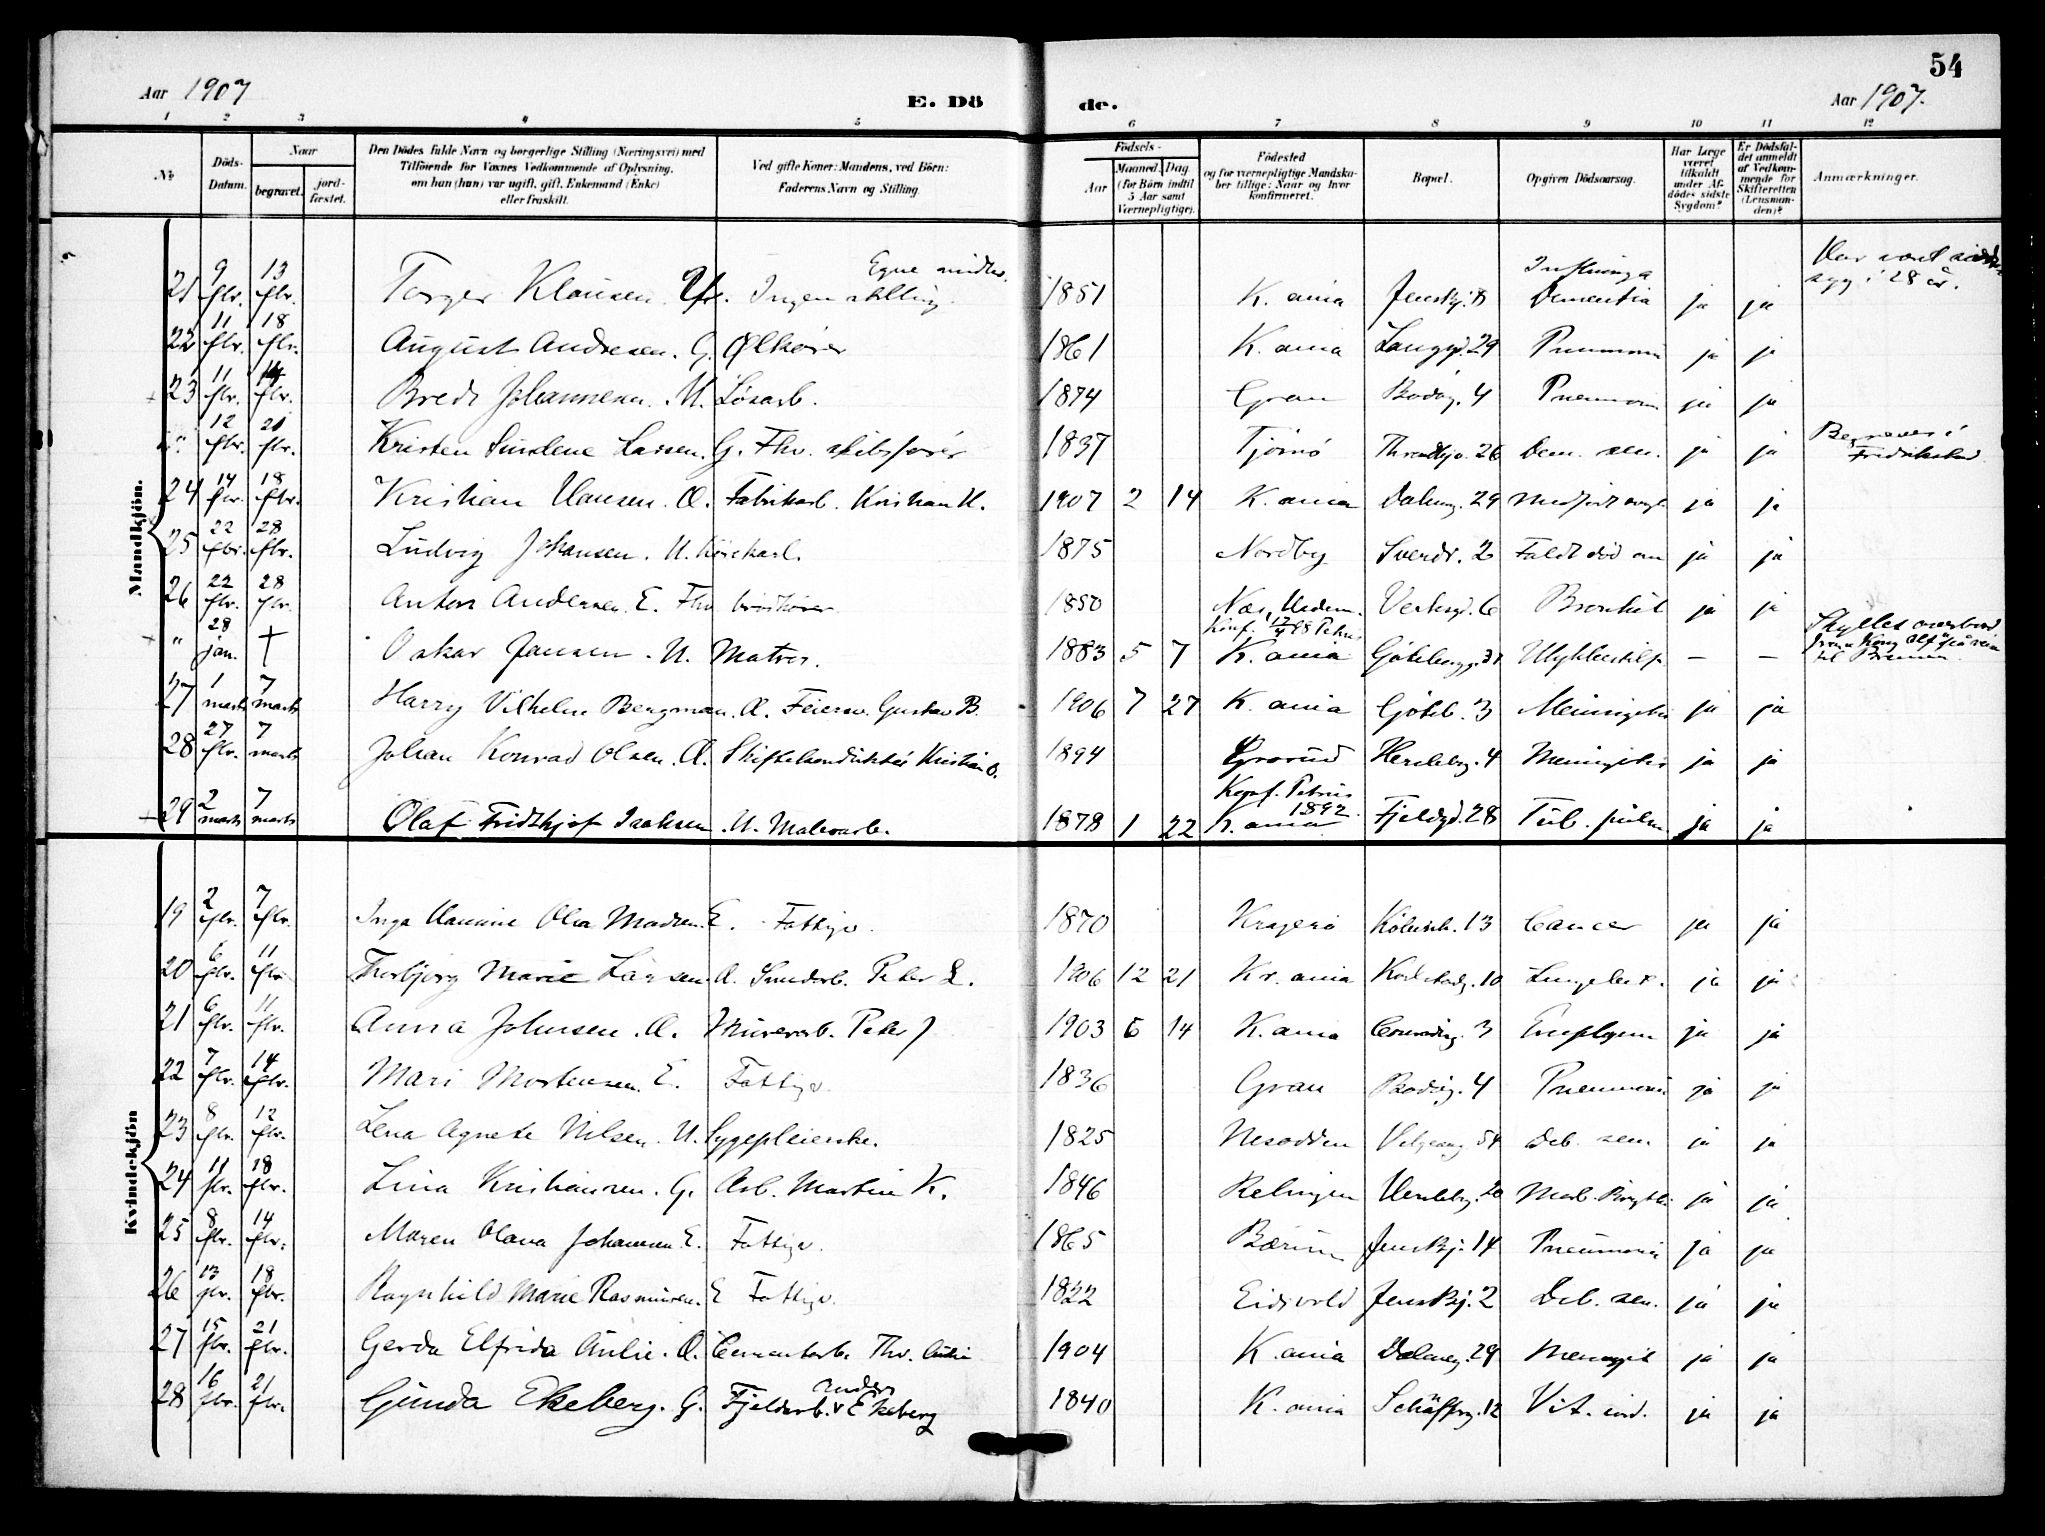 54
Aar 1907
E. Dö
de.
Aar 1907.
1 2 3 4 5 6 7 8 9 10 11 12
No
Döds-Datum.
Naar
begravet.
jord-fæstet.
Den Dödes fulde Navn og borgerlige Stilling (Næringsvei) med
Tilföiende for Voxnes Vedkommende af Oplysning,
om han (hun) var ugift, gift, Enkemand (Enke)
eller fraskilt.
Ved gifte Koner: Mandens, ved Börn:
Faderens Navn og Stilling.
Födsels-
Aar
Maaned. Dag.
(for Börn indtil
5 Aar samt
Værnepligtige).
Födested
og for værnepligtige Mandska-
ber tillige: Naar og hvor
konfirmeret.
Bopæl.
Opgiven Dödsaarsag.
Har Læge
været
tilkaldt
under Af-
dödes sidste
Sygdom?
Er Dödsfal-
det anmeldt
af Vedkom-
mende for
Skifteretten
(Lensman-
den)?
Anmærkninger.
Mandkjön.
21 9 fbr. 13 fbr. Torger Klausen. Ingen stilling Egne midler. 1851 K. ania Jensbj. Influenza Dementia ja ja Har været i 28 år.
22 11 fbr. 18 fbr. August Andresen. G. Ølkører 1861 K. ania Langgd. 29 Pneumoni ja ja
23 11 fbr. 14 fbr. Brede Johannesen. U. Løsarb. 1874 Gran Bodøg. 4 Pneumoni ja ja
" 12 fbr. 21 fbr. Kristen Sundene Larsen. G. Fhv. skibsfører 1837 Tjømø Throndhjv. 26 Dem. sen. ja ja Begraves i Fredrikstad
24 14 fbr. 18 fbr. Kristian Hansen. Æ. Fabrikarb. Kristian H. 1907 2 14 K. ania Daleng. 29 Medfødt svagh. ja ja
25 22 fbr. 28 fbr. Ludvig Johansen. U. Kjørekarl. 1875 Nordby Sverdr. 2 Faldt død om ja ja
26 22 fbr. 28 fbr. Anton Andersen. E. Fhv. 1850 Næs, Hedem. Verksgd. 6 Bronkit ja ja
" 28 jan. † Oskar Jansen. U. Matros. 1883 5 7 Konf. 17/4 98 Petrus K. ania Gøteborgg. 31 Ulykkestilf. — — Skyllet overbord fra Kong Alf på reise til Bremen.
27 1 marts 7 marts Harry Vilhelm Bergman. Æ. Feiersv. Gustav B. 1906 7 27 K. ania Gøteb. 3 Meningitis ja ja
28 27 fbr. 7 marts Johan Konrad Olsen. Æ. Kristian O. 1894 Grorud Herslebg. 4 Meningitis ja ja
29 2 marts 7 marts Olaf Fridthjof Isaksen. U. Malerarb. 1878 1 22 Konf. Petrus 1892. K. ania Fjeldgd. 28 Tub. pulm. ja ja
Kvindekjön
19 2 fbr. 7 fbr. Inga Hannine Olea Madsen. E. Fattigv. 1870 Kragerø Kølnsk. 13 Cancer ja ja
20 6 fbr. 11 fbr. Thorbjørg Marie Larsen. Æ. Smedarb. Peter L. 1906 12 21 Kr. ania Karlstadg. 10 Lungebet. ja ja
21 6 fbr. 11 fbr. Anna Johnsen. Æ. Murerarb. Peter J. 1903 6 14 K. ania Conradig. 3 Empyem ja ja
22 7 fbr. 14 fbr. Mari Mortensen. E. Fattigv. 1836 Gran Bodøg. 4 Pneumoni ja ja
23 8 fbr. 12 fbr. Lena Agnete Nilsen. U. Sygepleierske. 1825 Nesodden Vetje 54 Deb. sen. ja ja
24 11 fbr. 18 fbr. Lina Kristiansen. G. Arb. Martin K. 1846 Relingen Herslebg. 20 Morb. Brightii ja ja
25 8 fbr. 14 fbr. Maren Olava Johansen. E. Fattigv. 1865 Bærum Jensbj. 14 Pneumoni ja ja
26 13 fbr. 18 fbr. Ragnhild Marie Rasmussen. E Fattigv. 1822 Eidsvold Jensbj. 2 Deb. sen. ja ja
27 15 fbr. 21 fbr. Gerda Elfrida Aulie. Æ. Cementarb. Thv. Aulie 1904 K. ania Daleng. 29 Meningit ja ja
28 16 fbr. 21 fbr. Gunda Ekeberg. G. Fjeldarb. Ekeberg 1840 K. ania Schäffrg. 12 Vit. cord. ja ja